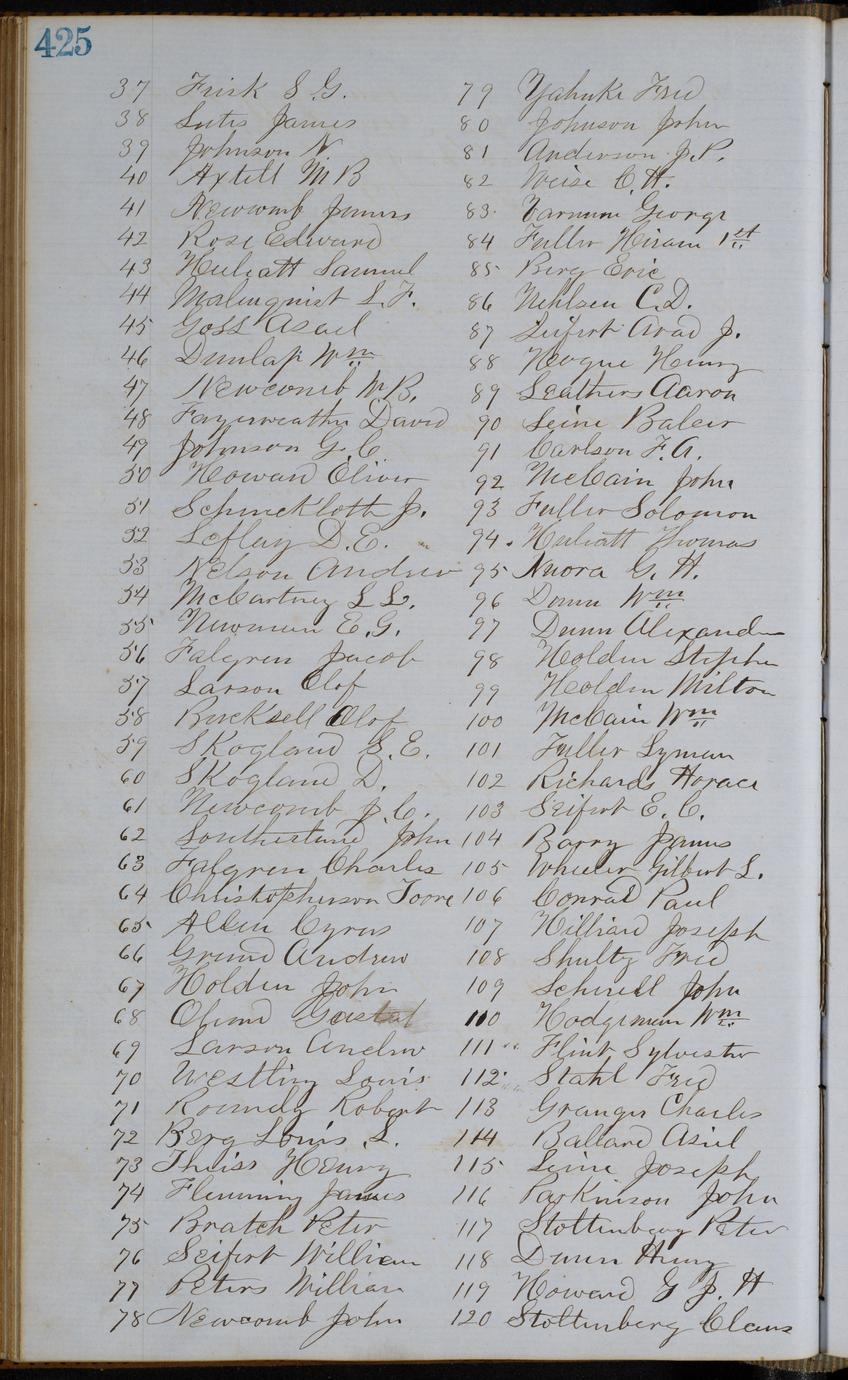 425
37 Frisk S. G.
38 Lutes James
39 Johnson N.
40 Axtell M B
41 Newcomb James
42 Rose Edward
43 Huliatt Samuel
44 Malmquist L. F.
45 Goss Asael
46 Dunlap Wm
47 Newcomb M B.
48 Fayerweather David
49 Johnson G. C.
50 Howard Oliver
51 Schmeckloth J.
52 Lefley D. E.
53 Nelson Andrew
54 McCartney L L.
55 Newman E. G.
56 Falgren Jacob
57 Larson Olof
58 Bucksell Olof
59 Skogland G. E.
60 Skogland D.
61 Newcomb J. C.
62 Southerland John
63 Falgren Charles
64 Christopherson Toore
65 Allen Cyrus
66 Grund Andrew
67 Holden John
68 Olund Gustaf
69 Larson Andrew
70 Westling Louis
71 Roundy Robert
72 Berg Louis L.
73 Theiss Henry
74 Flemming James
75 Bratch Peter
76 Seifert William
77 Peters William
78 Newcomb John
79 Yahnke Fred
80 Johnson John
81 Anderson J. P.
82 Weise C. H.
83 Varnum George
84 Fuller Hiram 1st
85 Berg Eric
86 Nehlsen C. D.
87 Seifert Arad J.
88 Hogue Henry
89 Leathers Aaron
90 Leine Balzer
91 Carlson F. A.
92 McCain John
93 Fuller Solomon
94 Huliatt Thomas
95 Knora G. H.
96 Dunn Wm
97 Dunn Alexander
98 Holden Stephen
99 Holden Milton
100 McCain Wm
101 Fuller Lyman
102 Richards Horace
103 Seifert E. C.
104 Barry James
105 Wheeler Gilbert L.
106 Conrad Paul
107 Hilliard Joseph
108 Shultz Fred
109 Schnell John
110 Hodgman Wm
111 Flint Sylvester
112 Stahl Fred
113 Granger Charles
114 Ballard Asiel
115 Leine Joseph
116 Parkinson John
117 Stoltenberg Peter
118 Dunn Henry
119 Howard G J. H
120 Stoltenberg Claus